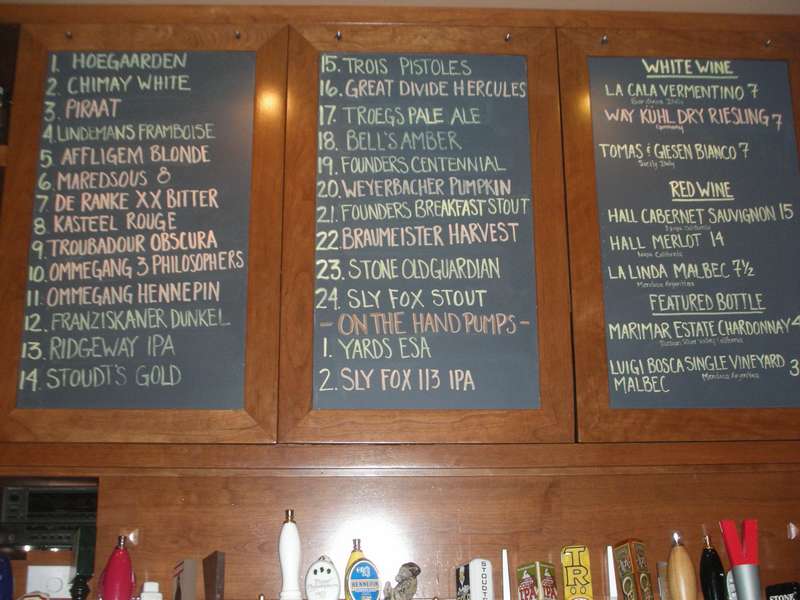 1. HOEGAARDEN
2. CHIMAY WHITE
3. PIRAAT
4. LINDEMANS FRAMBOISE
5. AFFLIGEM BLONDE
6. MAREDSOUS 8
7. DE RANKE XX BITTER
8. KASTEEL ROUGE
9. TROUBADOUR OBSCURA
10. OMMEGANG 3 PHILOSOPHERS
11. OMMEGANG HENNEPIN
12. FRANZISKANER DUNKEL
13. RIDGEWAY IPA
14. STOUDT'S GOLD
15. TROIS PISTOLES
16. GREAT DIVIDE HERCULES
17. TROEGS PALE ALE
18. BELL'S AMBER
19. FOUNDERS CENTENNIAL
20. WEYERBACHER PUMPKIN
21. FOUNDERS BREAKFAST STOUT
22. BRAUMEISTER HARVEST
23. STONE OLD GUARDIAN
24. SLY FOX STOUT
- ON THE HAND PUMPS -
1. YARDS ESA
2. SLY FOX 113 IPA
WHITE WINE
LA CALA VERMENTINO 7
Italy
WAY KÜHL DRY RIESLING 7
Germany
TOMAS & GIESEN BIANCO 7
Sicily Italy
RED WINE
HALL CABERNET SAUVIGNON 15
Napa California
HALL MERLOT 14
Napa California
LA LINDA MALBEC 7½
Mendoza Argentina
FEATURED BOTTLE
MARIMAR ESTATE CHARDONNAY 4
Russian River Valley California
LUIGI BOSCA SINGLE VINEYARD 3
MALBEC
Mendoza Argentina
HENNEPIN
STOUDT
IPA
TR
STONE